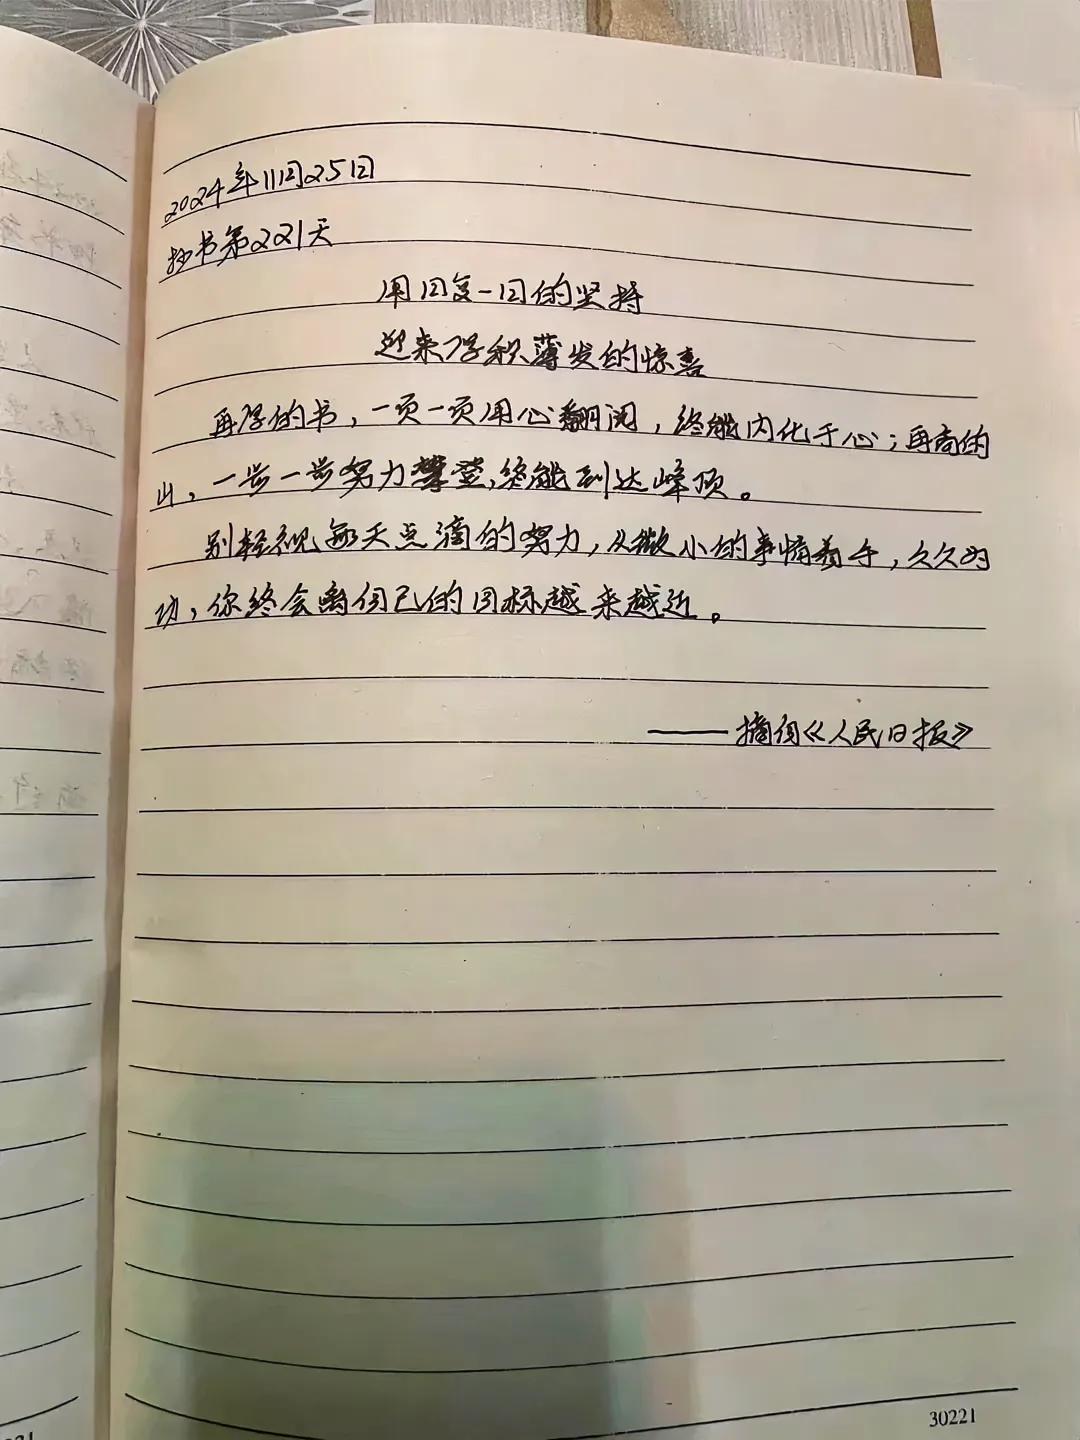 2024年11月25日
抄书第221天
用日复一日的坚持
迎来厚积薄发的惊喜
再厚的书，一页一页用心翻阅，终能内化于心；再高的
山，一步一步努力攀登，终能到达峰顶。
别轻视每天点滴的努力，从微小的事情着手，久久为
功，你终会离自己的目标越来越近。
——摘自《人民日报》
30221